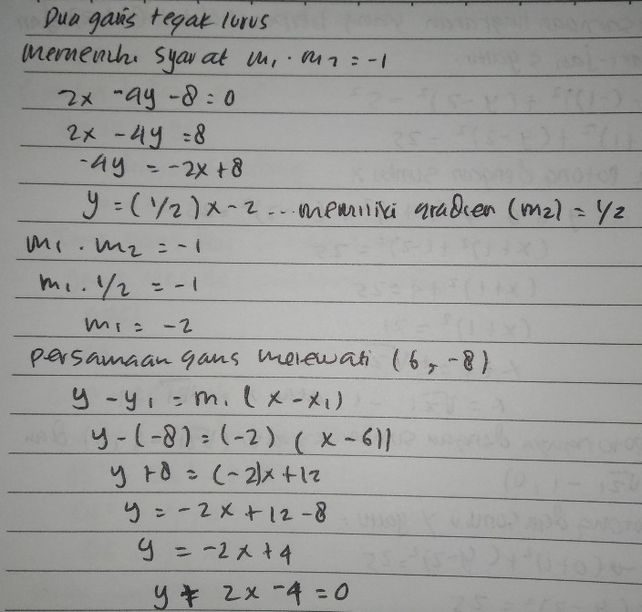 Dua garis tegak lurus
memenuhi syarat m₁ . m₂ = -1
2x -4y -8 = 0
2x - 4y = 8
-4y = -2x + 8
y = (1/2) x - 2 ... memiliki gradien (m2) = 1/2
m₁ . m₂ = -1
m₁ . 1/2 = -1
m₁ = -2
persamaan garis melewati (6, -8)
y - y₁ = m₁ (x - x₁)
y - (-8) = (-2) (x - 6))
y + 8 = (-2)x + 12
y = -2x + 12 - 8
y = -2x + 4
y + 2x - 4 = 0